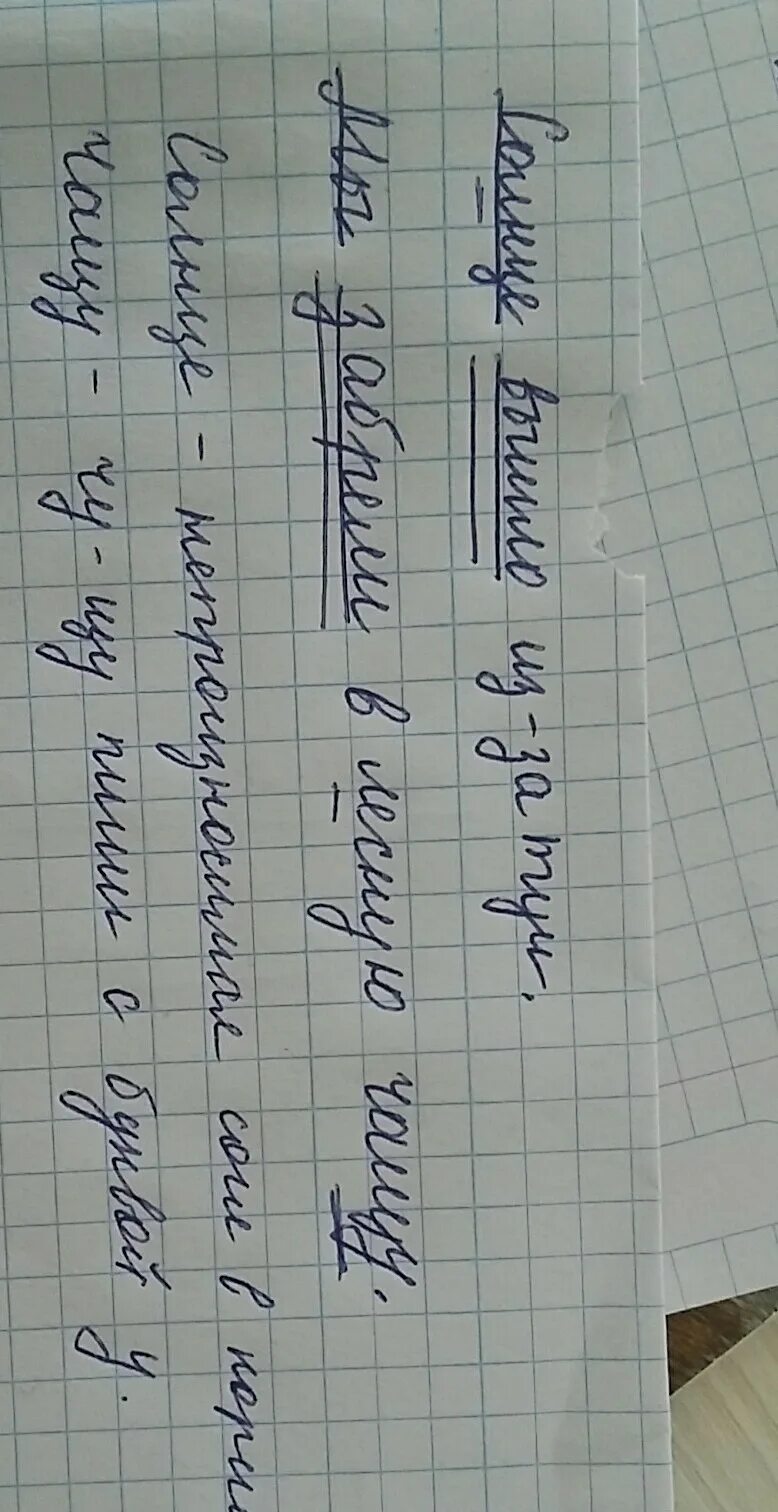 Солнце вышло из-за туч.
Мы забрели в лесную чащу.
Солнце - непроизносимая согл в корн
Чащу - чу-щу пиши с буквой у.